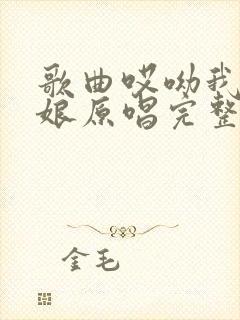 歌曲哎呦我
娘原唱完整
金毛